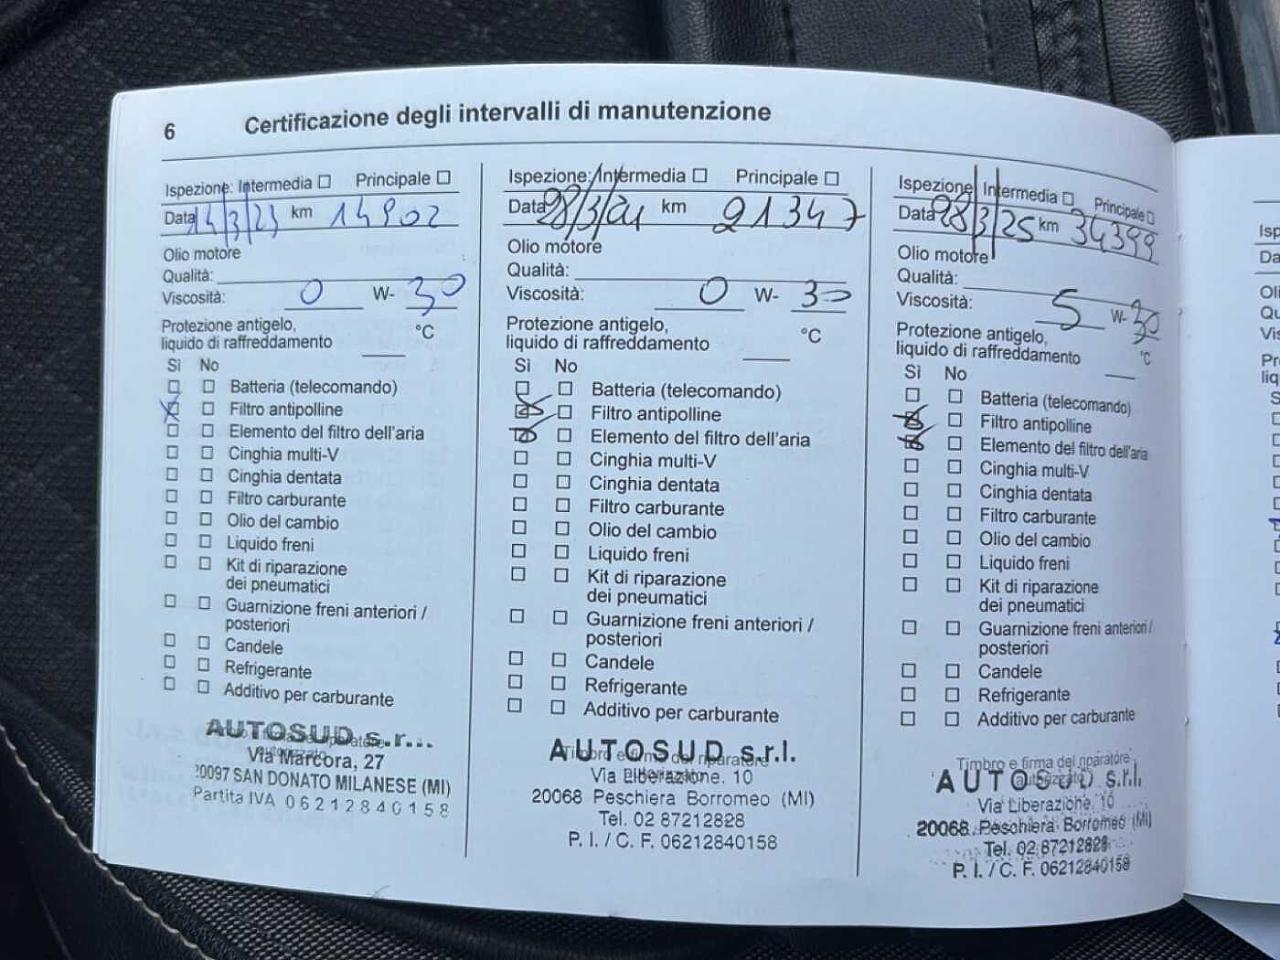 6 Certificazione degli intervalli di manutenzione
Ispezione: Intermedia ☐ Principale ☐
Data 14/3/23 km 14902
Olio motore
Qualità:
Viscosità: 0 W- 30
Protezione antigelo,
liquido di raffreddamento °C
Sì No
Batteria (telecomando)
Filtro antipolline
Elemento del filtro dell'aria
Cinghia multi-V
Cinghia dentata
Filtro carburante
Olio del cambio
Liquido freni
Kit di riparazione
dei pneumatici
Guarnizione freni anteriori /
posteriori
Candele
Refrigerante
Additivo per carburante
AUTOSUD s.r...
Via Marcora, 27
20097 SAN DONATO MILANESE (MI)
Partita IVA 06212840158
Ispezione: Intermedia ☐ Principale ☐
Data 28/3/24 km 21347
Olio motore
Qualità:
Viscosità: 0 W- 30
Protezione antigelo,
liquido di raffreddamento °C
Sì No
Batteria (telecomando)
Filtro antipolline
Elemento del filtro dell'aria
Cinghia multi-V
Cinghia dentata
Filtro carburante
Olio del cambio
Liquido freni
Kit di riparazione
dei pneumatici
Guarnizione freni anteriori /
posteriori
Candele
Refrigerante
Additivo per carburante
Timbro e firma del riparatore
AUTOSUD s.r.l.
Via Liberazione. 10
20068 Peschiera Borromeo (MI)
Tel. 02 87212828
P. I. / C. F. 06212840158
Ispezione: Intermedia ☐ Principale ☐
Data 28/3/25 km 34399
Olio motore
Qualità:
Viscosità: 5 W- 30
Protezione antigelo,
liquido di raffreddamento °C
Sì No
Batteria (telecomando)
Filtro antipolline
Elemento del filtro dell'aria
Cinghia multi-V
Cinghia dentata
Filtro carburante
Olio del cambio
Liquido freni
Kit di riparazione
dei pneumatici
Guarnizione freni anteriori /
posteriori
Candele
Refrigerante
Additivo per carburante
Timbro e firma del riparatore
AUTOSUD s.r.l.
Via Liberazione, 10
20068 Peschiera Borromeo (MI)
Tel. 02 87212828
P. I. / C. F. 06212840158